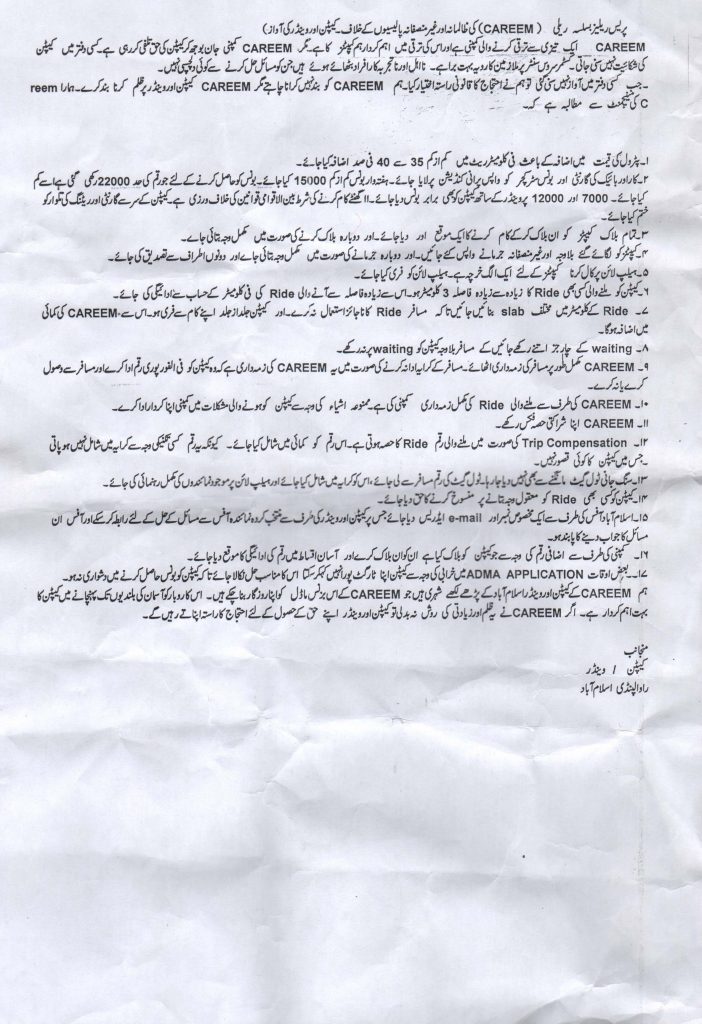 پریس ریلیز بسلسہ ریلی (CAREEM) کی ظالمانہ اور غیر منصفانہ پالیسیوں کے خلاف۔ کیپٹن اور وینڈر کی آواز)
CAREEM ایک تیزی سے ترقی کرنے والی کمپنی ہے اور اس کی ترقی میں اہم کردار ہم کیپٹنز کا ہے۔ مگر CAREEM کمپنی جان بوجھ کر کیپٹن کی حق تلفی کر رہی ہے۔ کسی دفتر میں کیپٹن
کی شکائیت نہیں سنی جاتی۔ کسٹمر سروس سنٹر پر ملازمین کا رویہ بہت برا ہے۔ نا اہل اور نا تجربہ کار افراد بٹھائے ہوئے ہیں جن کو مسائل حل کرنے سے کوئی دلچسپی نہیں۔
۔جب کسی دفتر میں آواز نہیں سنی گئی تو ہم نے احتجاج کا قانونی راستہ اختیار کیا۔ ہم CAREEM کو بند نہیں کرانا چاہتے مگر CAREEM کیپٹن اور وینڈر پر ظلم کرنا بند کرے۔ ہمارا reem
C کی مینجمنٹ سے مطالبہ ہے کہ۔
۱۔ پٹرول کی قیمت میں اضافہ کے باعث فی کلومیٹر ریٹ میں کم از کم 35 سے 40 فی صد اضافہ کیا جائے۔
۲۔ کار اور بائیک کی گارنٹی اور بونس سٹرکچر کو واپس پرانی کنڈیشن پر لایا جائے۔ ہفتہ وار بونس کم از کم 15000 کیا جائے۔ بونس کو حاصل کرنے کے لئے جو رقم کی حد 22000 رکھی گئی ہے اسے کم
کیا جائے۔ 7000 اور 12000 پر وینڈر کے ساتھ کیپٹن کو بھی برابر بونس دیا جائے۔ ۱۱ گھنٹے کام کرنے کی شرط بین الاقوامی قوانین کی خلاف ورزی ہے۔ کیپٹن کے سر سے گارنٹی اور ریٹنگ کی تلوار کو
ختم کیا جائے۔
۳۔ تمام بلاک کیپٹنز کو ان بلاک کر کے کام کرنے کا ایک موقع اور دیا جائے۔ اور دوبارہ بلاک کرنے کی صورت میں مکمل وجہ بتائی جاے۔
۴۔ کیپٹنز کو لگائے گئے بلاوجہ اور غیر منصفانہ جرمانے واپس کئے جائیں۔ اور دوبارہ جرمانے کی صورت میں مکمل وجہ بتائی جاے اور دونوں اطراف سے تصدیق کی جائے۔
۵۔ ہیلپ لائن پر کال کرنا کیپٹنز کے لئے ایک الگ خرچہ ہے۔ ہیلپ لائن کو فری کیا جائے۔
۶۔ کیپٹن کو ملنے والی کسی بھی Ride کا زیادہ سے زیادہ فاصلہ 3 کلومیٹر ہو۔ اس سے زیادہ فاصلہ سے آنے والی Ride کی فی کلومیٹر کے حساب سے ادائیگی کی جائے۔
۷۔ Ride کے کلومیٹر میں مختلف slab بنائیں جائیں تاکہ مسافر Ride کا ناجائز استعمال نہ کرے۔ اور کیپٹن جلد از جلد اپنے کام سے فری ہو۔ اس سے CAREEM کی کمائی
میں اضافہ ہوگا۔
۸۔ waiting کے چارجز اتنے رکھے جائیں کے مسافر بلاوجہ کیپٹن کو waiting پر نہ رکھے۔
۹۔ CAREEM مکمل طور پر مسافر کی زمہ داری اٹھائے۔ مسافر کے کرایہ ادا نہ کرنے کی صورت میں یہ CAREEM کی زمہ داری ہے کہ وہ کیپٹن کو فی الفور پوری رقم ادا کرے اور مسافر سے وصول
کرے یا نہ کرے۔
۱۰۔ CAREEM کی طرف سے ملنے والی Ride کی مکمل زمہ داری کمپنی کی ہے۔ ممنوعہ اشیاء کی وجہ سے کیپٹن کو ہونے والی مشکلات میں کمپنی اپنا کردار ادا کرے۔
۱۱۔ CAREEM اپنا شراکتی حصہ فکس رکھے۔
۱۲۔ Trip Compensation کی صورت میں ملنے والی رقم Ride کا حصہ ہوتی ہے۔ اس رقم کو کمائی میں شامل کیا جائے۔ کیونکہ یہ رقم کسی تکنیکی وجہ سے کرایہ میں شامل نہیں ہو پاتی
۔جس میں کیپٹن کا کوئی قصور نہیں۔
۱۳۔ سنگ جانی ٹول گیٹ مانگنے سے بھی نہیں دیا جا رہا۔ ٹول گیٹ کی رقم مسافر سے لی جائے، اس کو کرایہ میں شامل کیا جائے اور ہیلپ لائن پر موجود نمائندوں کی مکمل رہنمائی کی جائے۔
۱۴۔ کیپٹن کو کسی بھی Ride کو معقول وجہ بتانے پر منسوخ کرنے کا حق دیا جائے۔
۱۵۔ اسلام آباد آفس کی طرف سے ایک مخصوص نمبر اور e-mail ایڈریس دیا جائے جس پر کیپٹن اور وینڈر کی طرف سے منتخب کردہ نمائندہ آفس سے مسائل کے حل کے لئے رابطہ کر سکے اور آفس ان
مسائل کا جواب دینے کا پابند ہو۔
۱۶۔ کمپنی کی طرف سے اضافی رقم کی وجہ سے جو کیپٹن کو بلاک کیا ہے ان کو ان بلاک کرے اور آسان اقساط میں رقم کی ادائیگی کا موقع دیا جائے۔
۱۷۔ بعض اوقات ADMA APPLICATION میں خرابی کی وجہ سے کیپٹن اپنا ٹارگٹ پورا نہیں کر سکتا اس کا مناسب حل نکالا جائے تاکہ کیپٹن کو بونس حاصل کرنے میں دشواری نہ ہو۔
ہم CAREEM کے کیپٹن اور وینڈر اسلام آباد کے پڑھے لکھے شہری ہیں جو CAREEM کے اس بزنس ماڈل کو اپنا روزگار بنا چکے ہیں۔ اس کاروبار کو آسمان کی بلندیوں تک پہنچانے میں کیپٹن کا
بہت اہم کردار ہے۔ اگر CAREEM نے یہ ظلم اور زیادتی کی روش نہ بدلی تو کیپٹن اور وینڈر اپنے حق کے حصول کے لئے احتجاج کا راستہ اپناتے رہیں گے۔
منجانب
کیپٹن / وینڈر
راولپنڈی اسلام آباد